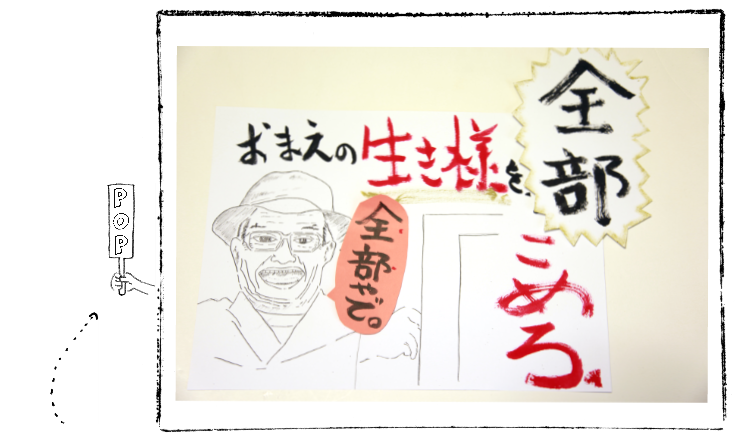 POP
おまえの生き様を、
全部
こめろ。
全部やで。